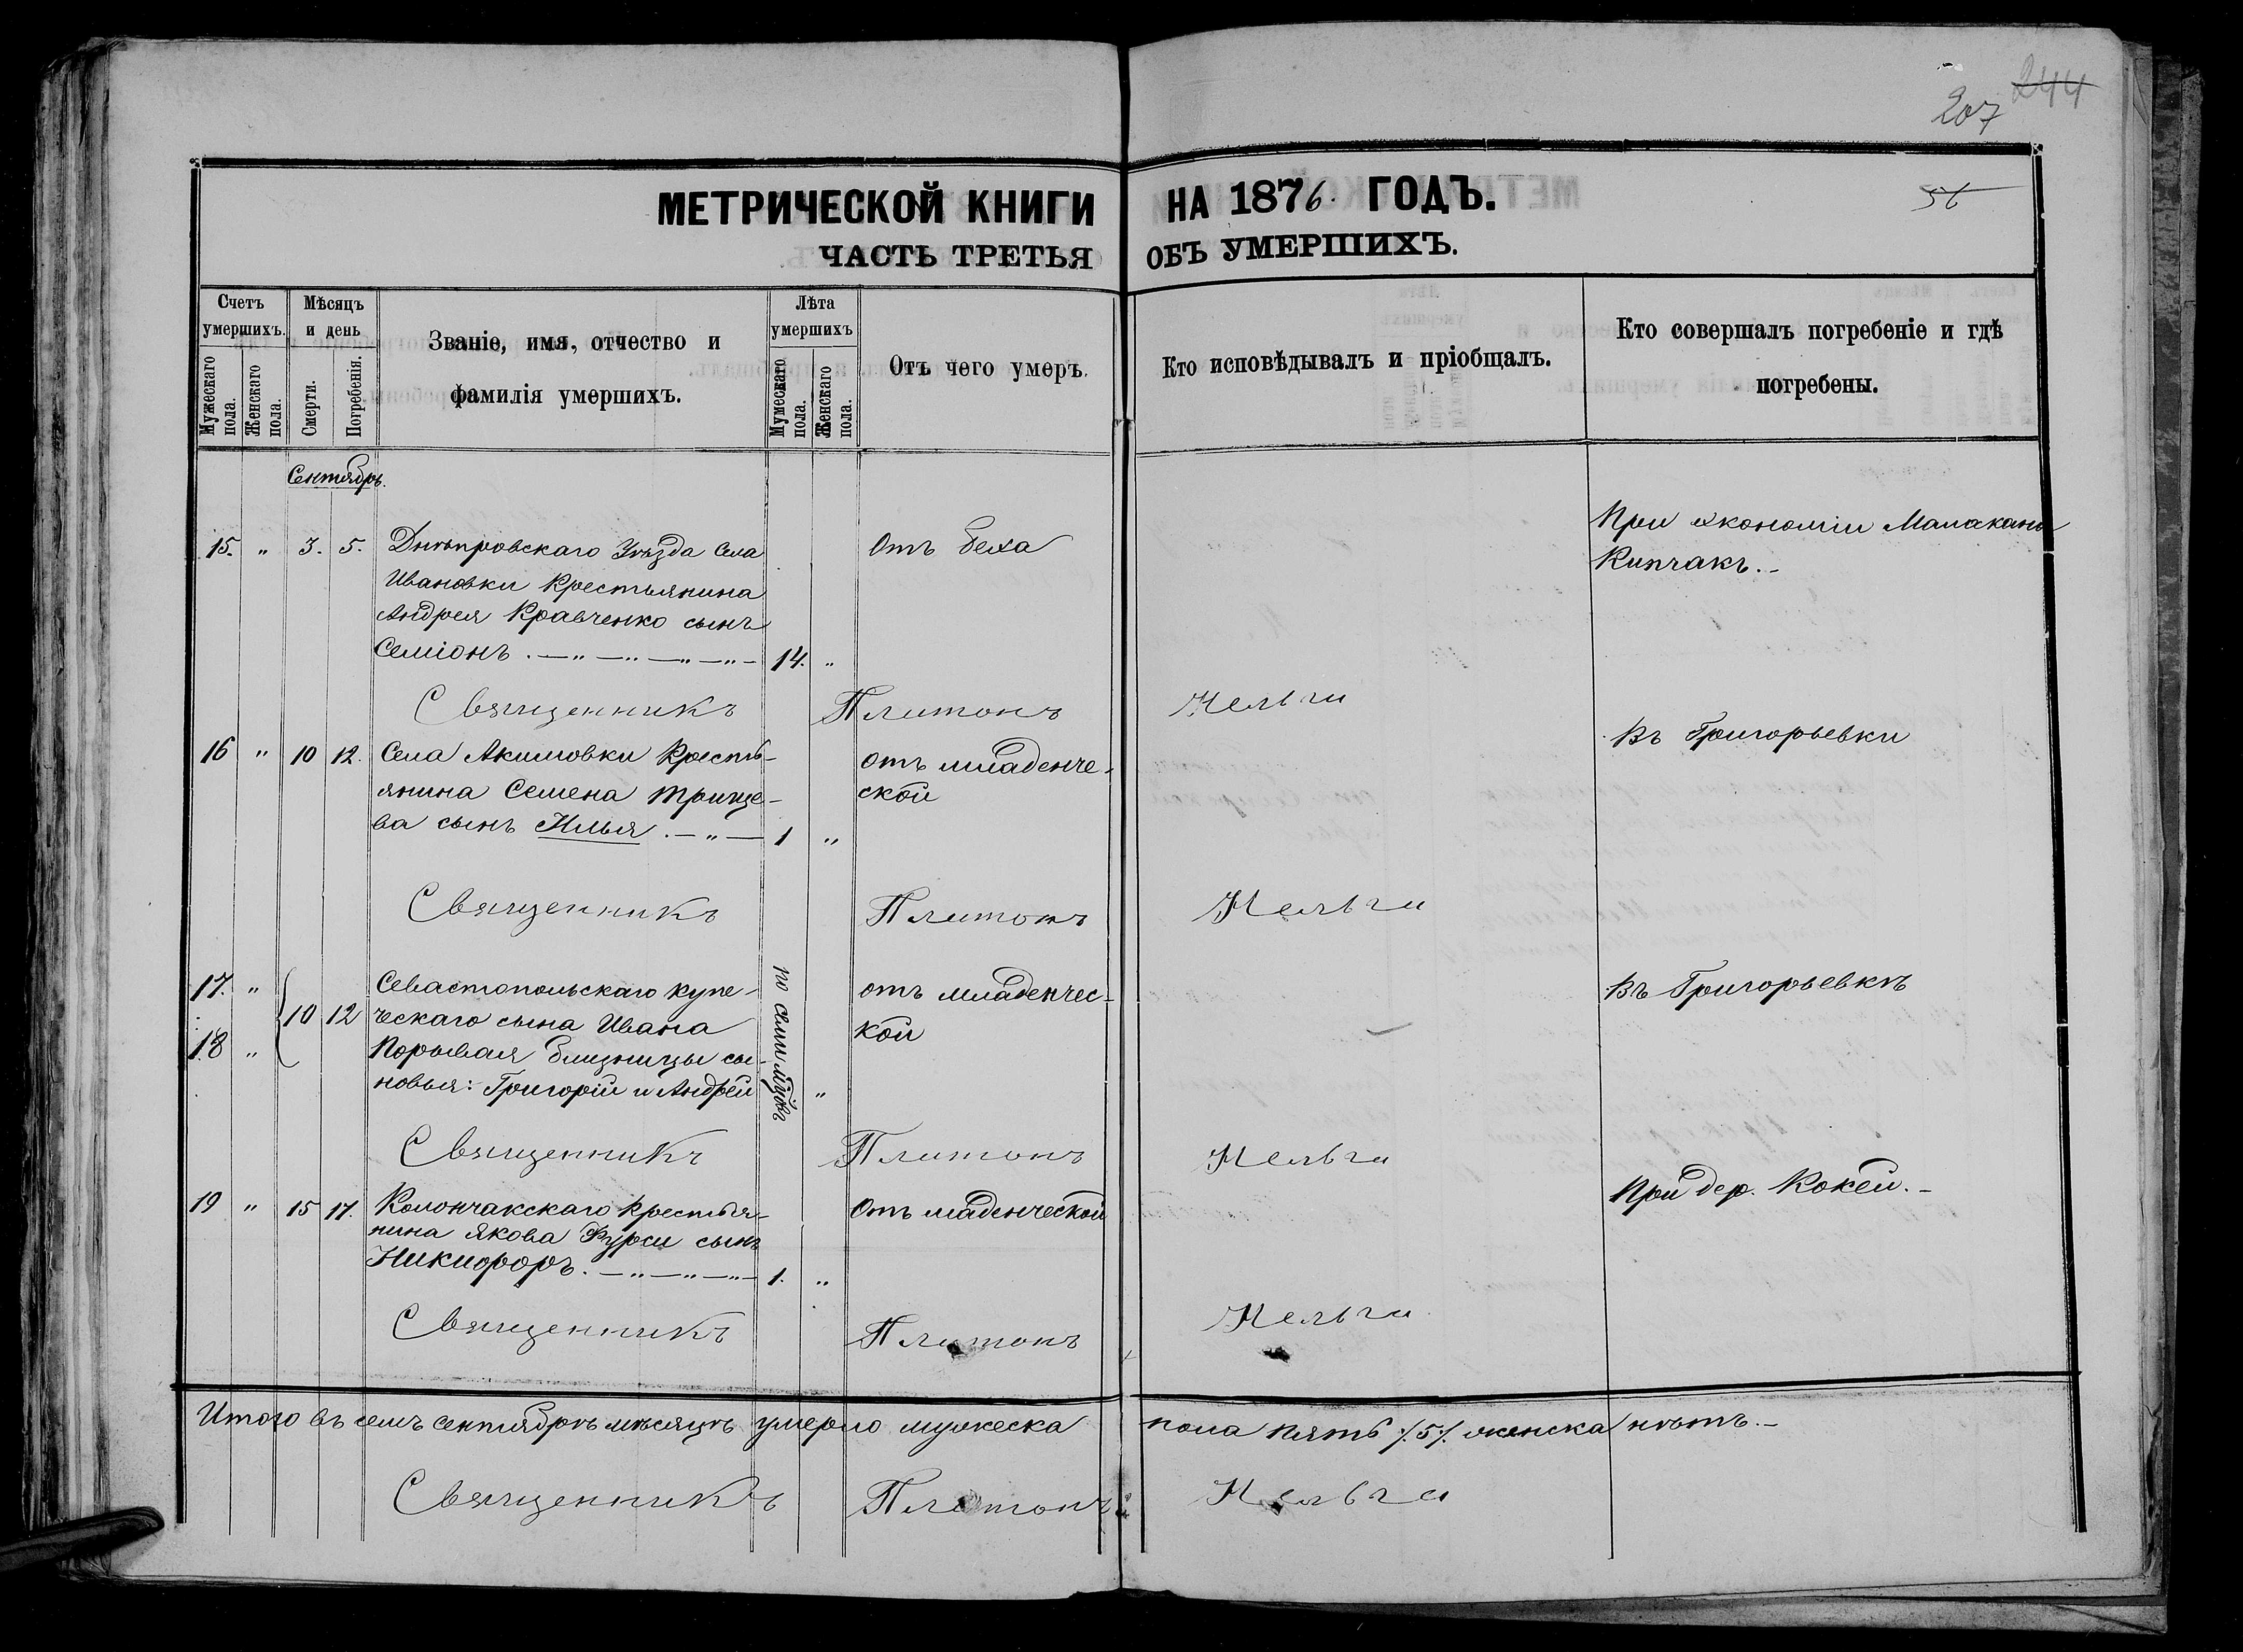 244
207
МЕТРИЧЕСКОЙ КНИГИ НА 1876. ГОДЪ.
56
ЧАСТЬ ТРЕТЬЯ ОБЪ УМЕРШИХЪ.
Счетъ умершихъ.
Мужескаго пола.
Женскаго пола.
Мѣсяцъ и день
Смерти.
Погребенія.
Званіе, имя, отчество и
фамилія умершихъ.
Лѣта умершихъ
Мужескаго пола.
Женскаго пола.
Отъ чего умеръ.
Кто исповѣдывалъ и пріобщалъ.
Кто совершалъ погребеніе и гдѣ
погребены.
Сентябрь.
15. " 3. 5. Днѣпровскаго Уѣзда Села
Ивановки Крестьянина
Андрея Кравченко сынъ
Семіонъ . — " — " — " — " — 14. "
Отъ беха
При экономіи
Кипчакъ. -
Священникъ Платонъ Нельги
16 " 10 12. Села Акимовки Кресть-
янина Семена Грице-
ва сынъ Илья . — " — 1 "
отъ младенче-
ской
Въ Григорьевки
Священникъ Платонъ Нельги
17. "
18 "
10 12
Севастопольскаго купе-
ческаго сына Ивана
близницы сы-
новья: Григорій и Андрей
по семи "
отъ младенчес-
кой
Въ Григорьевкѣ
Священникъ Платонъ Нельги
19 " 15 17. Колончакскаго Крестья-
нина Якова Фурси сынъ
Никифоръ . — " — " — " — 1. "
Отъ младенческой
При дер. Кокей. -
Священникъ Платонъ Нельги
Итого въ семъ сентябрѣ мѣсяцѣ умерло мужеска пола пять /.5/. женска нѣтъ. -
Священникъ Платонъ Нельги